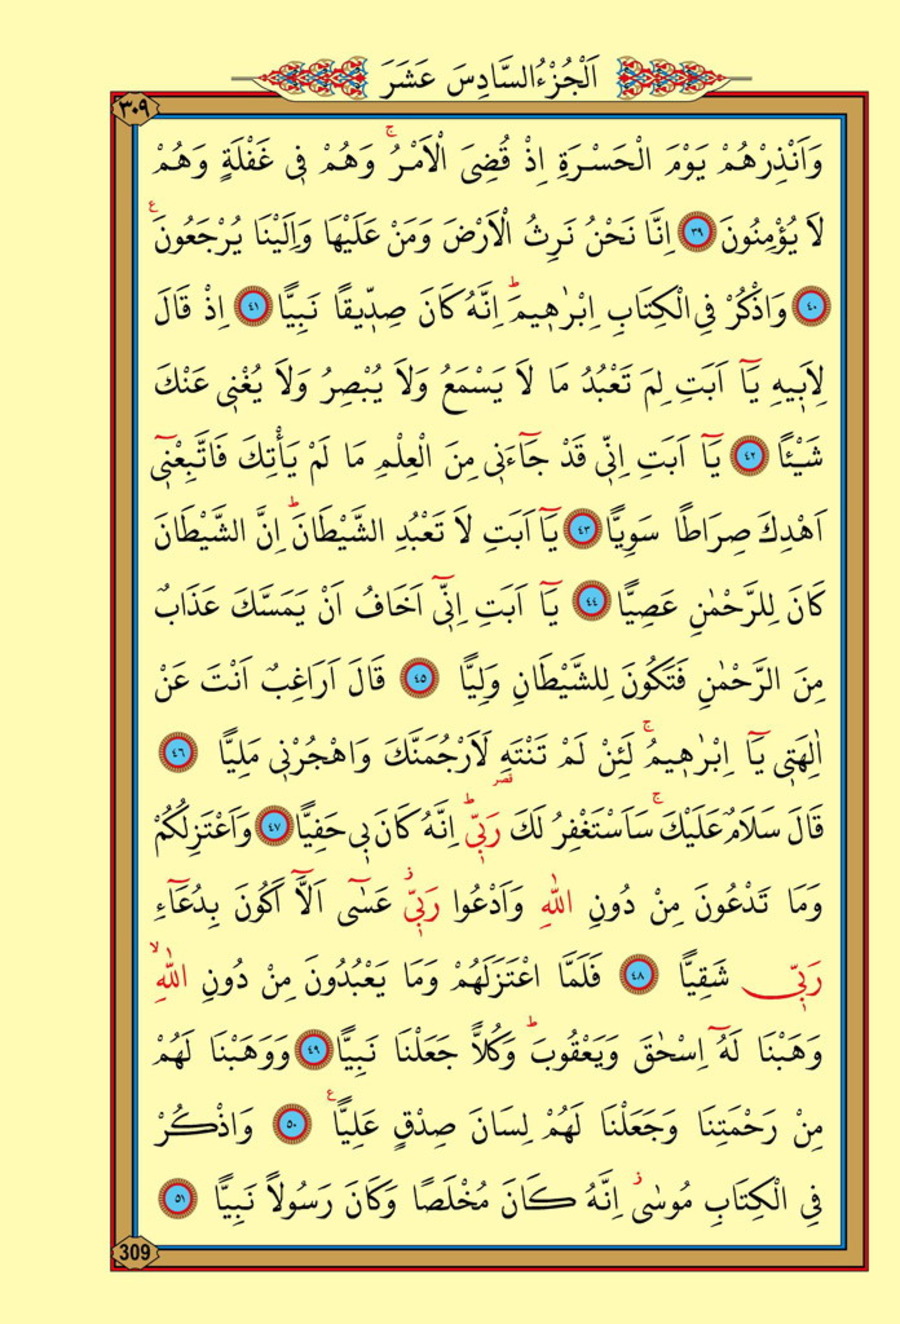 اَلْجُزْءُ السَّادِسَ عَشَرَ
٣٠٩
وَاَنْذِرْهُمْ يَوْمَ الْحَسْرَةِ اِذْ قُضِىَ الْاَمْرُۚ وَهُمْ فٖى غَفْلَةٍ وَهُمْ
لَا يُؤْمِنُونَ ﴿٣٩﴾ اِنَّا نَحْنُ نَرِثُ الْاَرْضَ وَمَنْ عَلَيْهَا وَاِلَيْنَا يُرْجَعُونَ ع
﴿٤٠﴾ وَاذْكُرْ فِى الْكِتَابِ اِبْرٰهٖيمَؕ اِنَّهُ كَانَ صِدّٖيقًا نَبِيًّا ﴿٤١﴾ اِذْ قَالَ
لِاَبٖيهِ يَٓا اَبَتِ لِمَ تَعْبُدُ مَا لَا يَسْمَعُ وَلَا يُبْصِرُ وَلَا يُغْنٖى عَنْكَ
شَيْـًٔا ﴿٤٢﴾ يَٓا اَبَتِ اِنّٖى قَدْ جَٓاءَنٖى مِنَ الْعِلْمِ مَا لَمْ يَأْتِكَ فَاتَّبِعْنٖٓى
اَهْدِكَ صِرَاطًا سَوِيًّا ﴿٤٣﴾ يَٓا اَبَتِ لَا تَعْبُدِ الشَّيْطَانَؕ اِنَّ الشَّيْطَانَ
كَانَ لِلرَّحْمٰنِ عَصِيًّا ﴿٤٤﴾ يَٓا اَبَتِ اِنّٖٓى اَخَافُ اَنْ يَمَسَّكَ عَذَابٌ
مِنَ الرَّحْمٰنِ فَتَكُونَ لِلشَّيْطَانِ وَلِيًّا ﴿٤٥﴾ قَالَ اَرَاغِبٌ اَنْتَ عَنْ
اٰلِهَتٖى يَٓا اِبْرٰهٖيمُۚ لَئِنْ لَمْ تَنْتَهِ لَاَرْجُمَنَّكَ وَاهْجُرْنٖى مَلِيًّا ﴿٤٦﴾
قصر
قَالَ سَلَامٌ عَلَيْكَۚ سَاَسْتَغْفِرُ لَكَ رَبّٖىؕ اِنَّهُ كَانَ بٖى حَفِيًّا ﴿٤٧﴾ وَاَعْتَزِلُكُمْ
وَمَا تَدْعُونَ مِنْ دُونِ اللّٰهِ وَاَدْعُوا رَبّٖىؗ عَسٰٓى اَلَّٓا اَكُونَ بِدُعَٓاءِ
رَبّٖى شَقِيًّا ﴿٤٨﴾ فَلَمَّا اعْتَزَلَهُمْ وَمَا يَعْبُدُونَ مِنْ دُونِ اللّٰهِۙ
وَهَبْنَا لَهُٓ اِسْحٰقَ وَيَعْقُوبَؕ وَكُلًّا جَعَلْنَا نَبِيًّا ﴿٤٩﴾ وَوَهَبْنَا لَهُمْ
مِنْ رَحْمَتِنَا وَجَعَلْنَا لَهُمْ لِسَانَ صِدْقٍ عَلِيًّا ع ﴿٥٠﴾ وَاذْكُرْ
فِى الْكِتَابِ مُوسٰىؗ اِنَّهُ كَانَ مُخْلَصًا وَكَانَ رَسُولًا نَبِيًّا ﴿٥١﴾
309